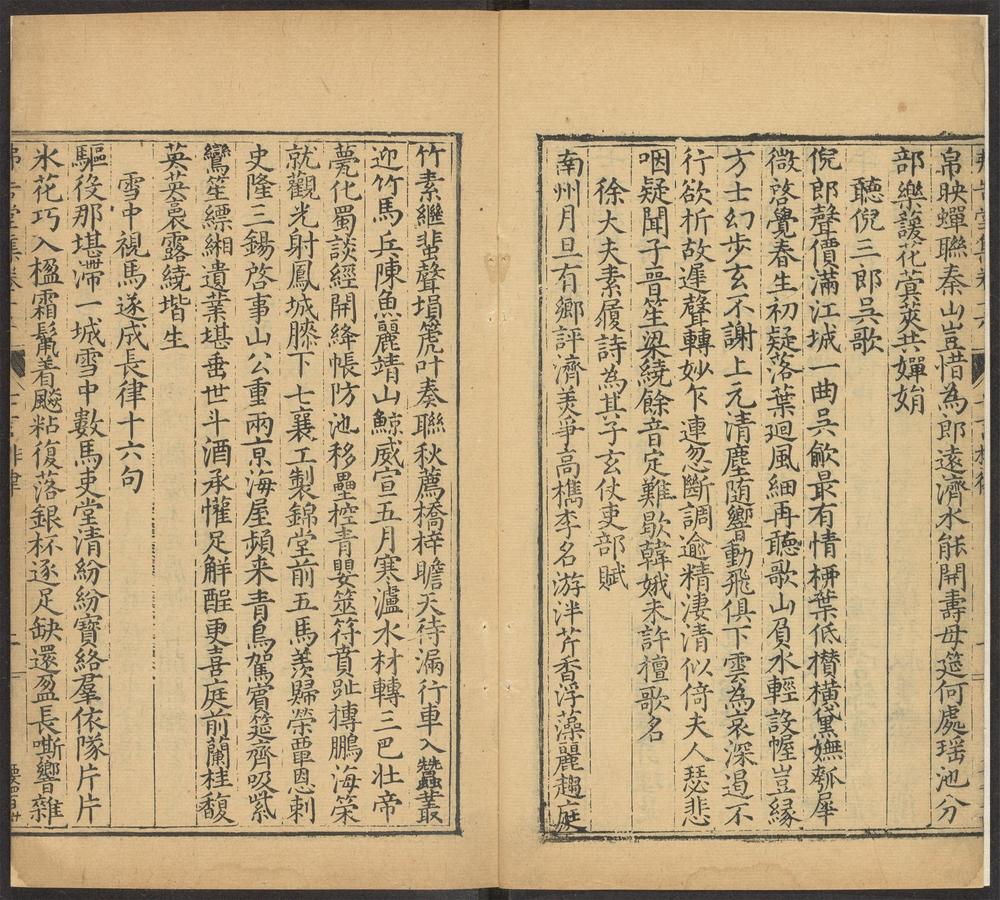 帛映蟬聯秦山豈惜為郎遠濟水能開壽母筵何處瑶池分
部樂護花蓂莢共嬋娟
聽倪三郎吳歌
倪郎聲價滿江城一曲吳歈最有情栁葉低攅橫黛嫵瓠犀
微啓覺春生初疑落葉廻風細再聽歌山負水輕設幄豈緣
方士幻步玄不謝上元清塵随響動飛俱下雲為哀深遏不
行欲析故遲聲轉妙乍連忽斷調逾精淒清似倚夫人瑟悲
咽疑聞子晉笙梁繞餘音定難歇韓娥未許檀歌名
徐大夫素履詩為其子玄仗吏部賦
南州月旦有鄉評濟美爭高檇李名游泮芹香浮藻麗趨庭
竹素繼蜚聲塤箎叶奏聯秋薦橋梓瞻天待漏行車入蠶叢
迎竹馬兵陳魚麗靖山鯨威宣五月寒瀘水材轉三巴壯帝
甍化蜀談經開絳帳防池移壘椌青嬰筮符賁趾摶鵬海榮
就觀光射鳳城膝下七襄工製錦堂前五馬羨歸榮覃恩剌
史隆三錫啓事山公重兩亰海屋頻来青鳥駕賓筵齊吸紫
鸞笙縹緗遺業堪垂世斗酒承懽足觧酲更喜庭前蘭桂馥
英英裛露繞堦生
雪中視馬遂成長律十六句
驅役那堪滯一城雪中數馬吏堂清紛紛寶絡羣依隊片片
氷花巧入楹霜鬛着颷粘復落銀杯逐足缺還盈長嘶響雜